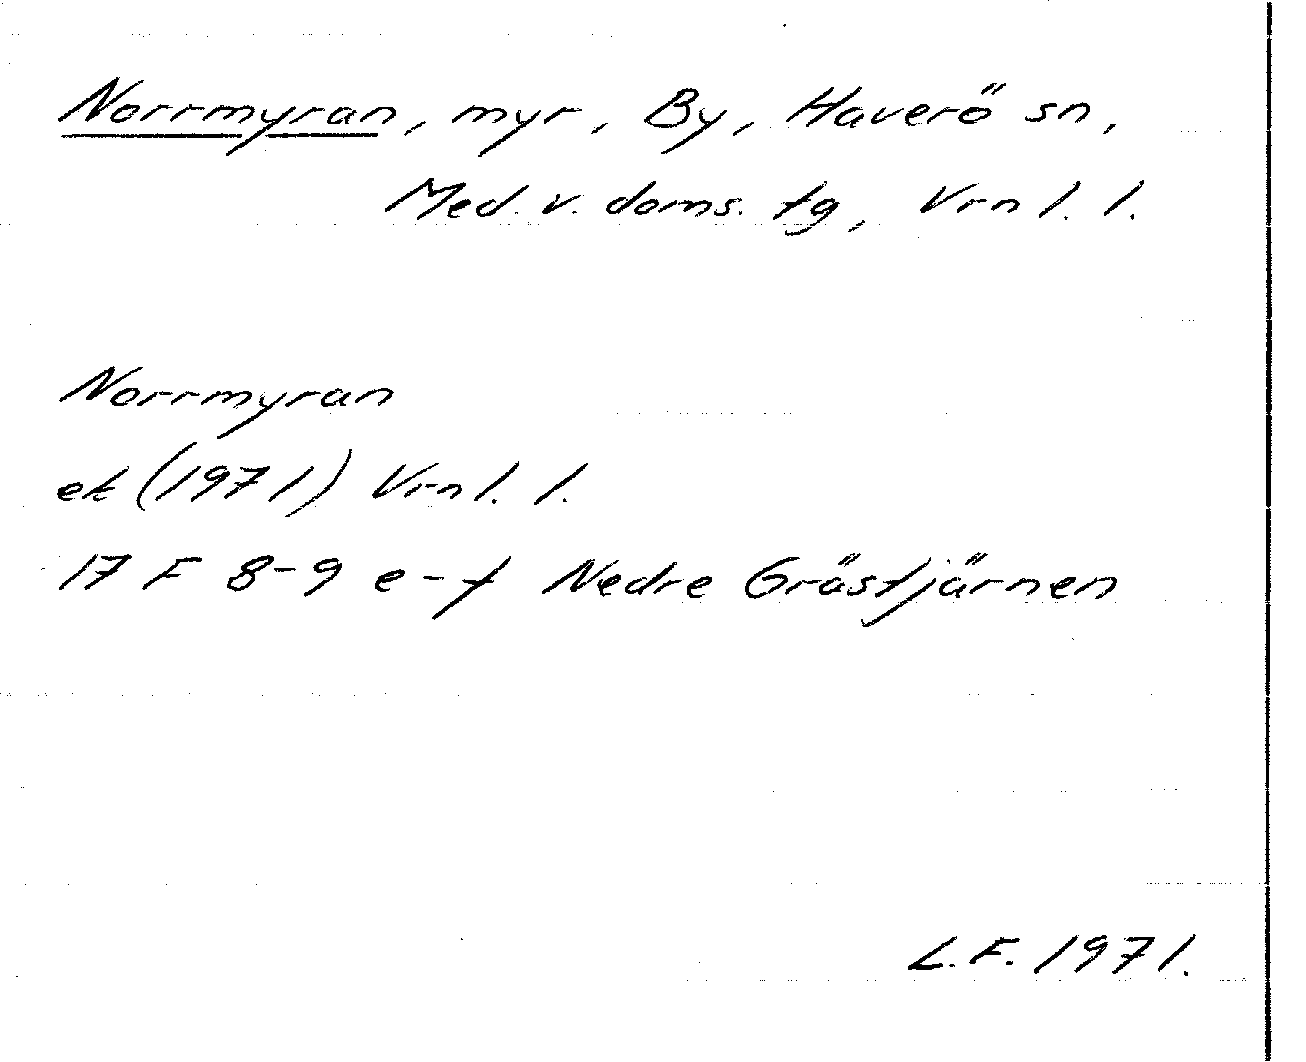 Norrmyran, myr, By, Haverö sn,
Med. v. doms. tg, Vrnl. l.
Norrmyran
ek (1971) Vrnl. l.
17 F 8-9 e-f Nedre Grästjärnen
L.F. 1971.